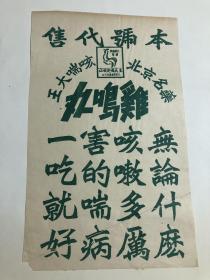 本號代售
北京名藥
咳喘大王
雞鳴丸
無論什麽
咳嗽多厲
害的喘病
一吃就好